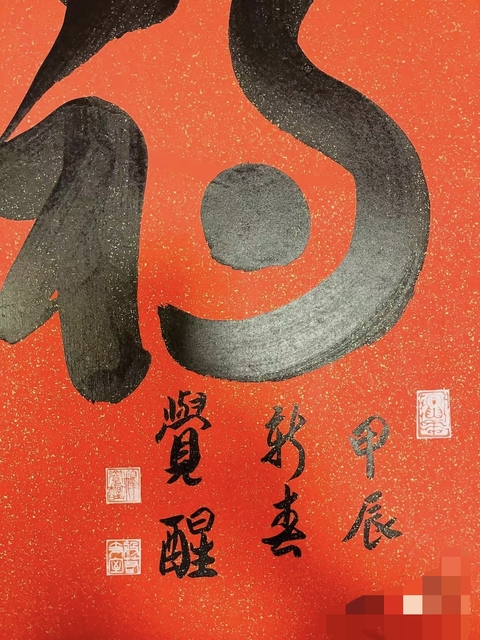 福
甲辰
新春
覺醒